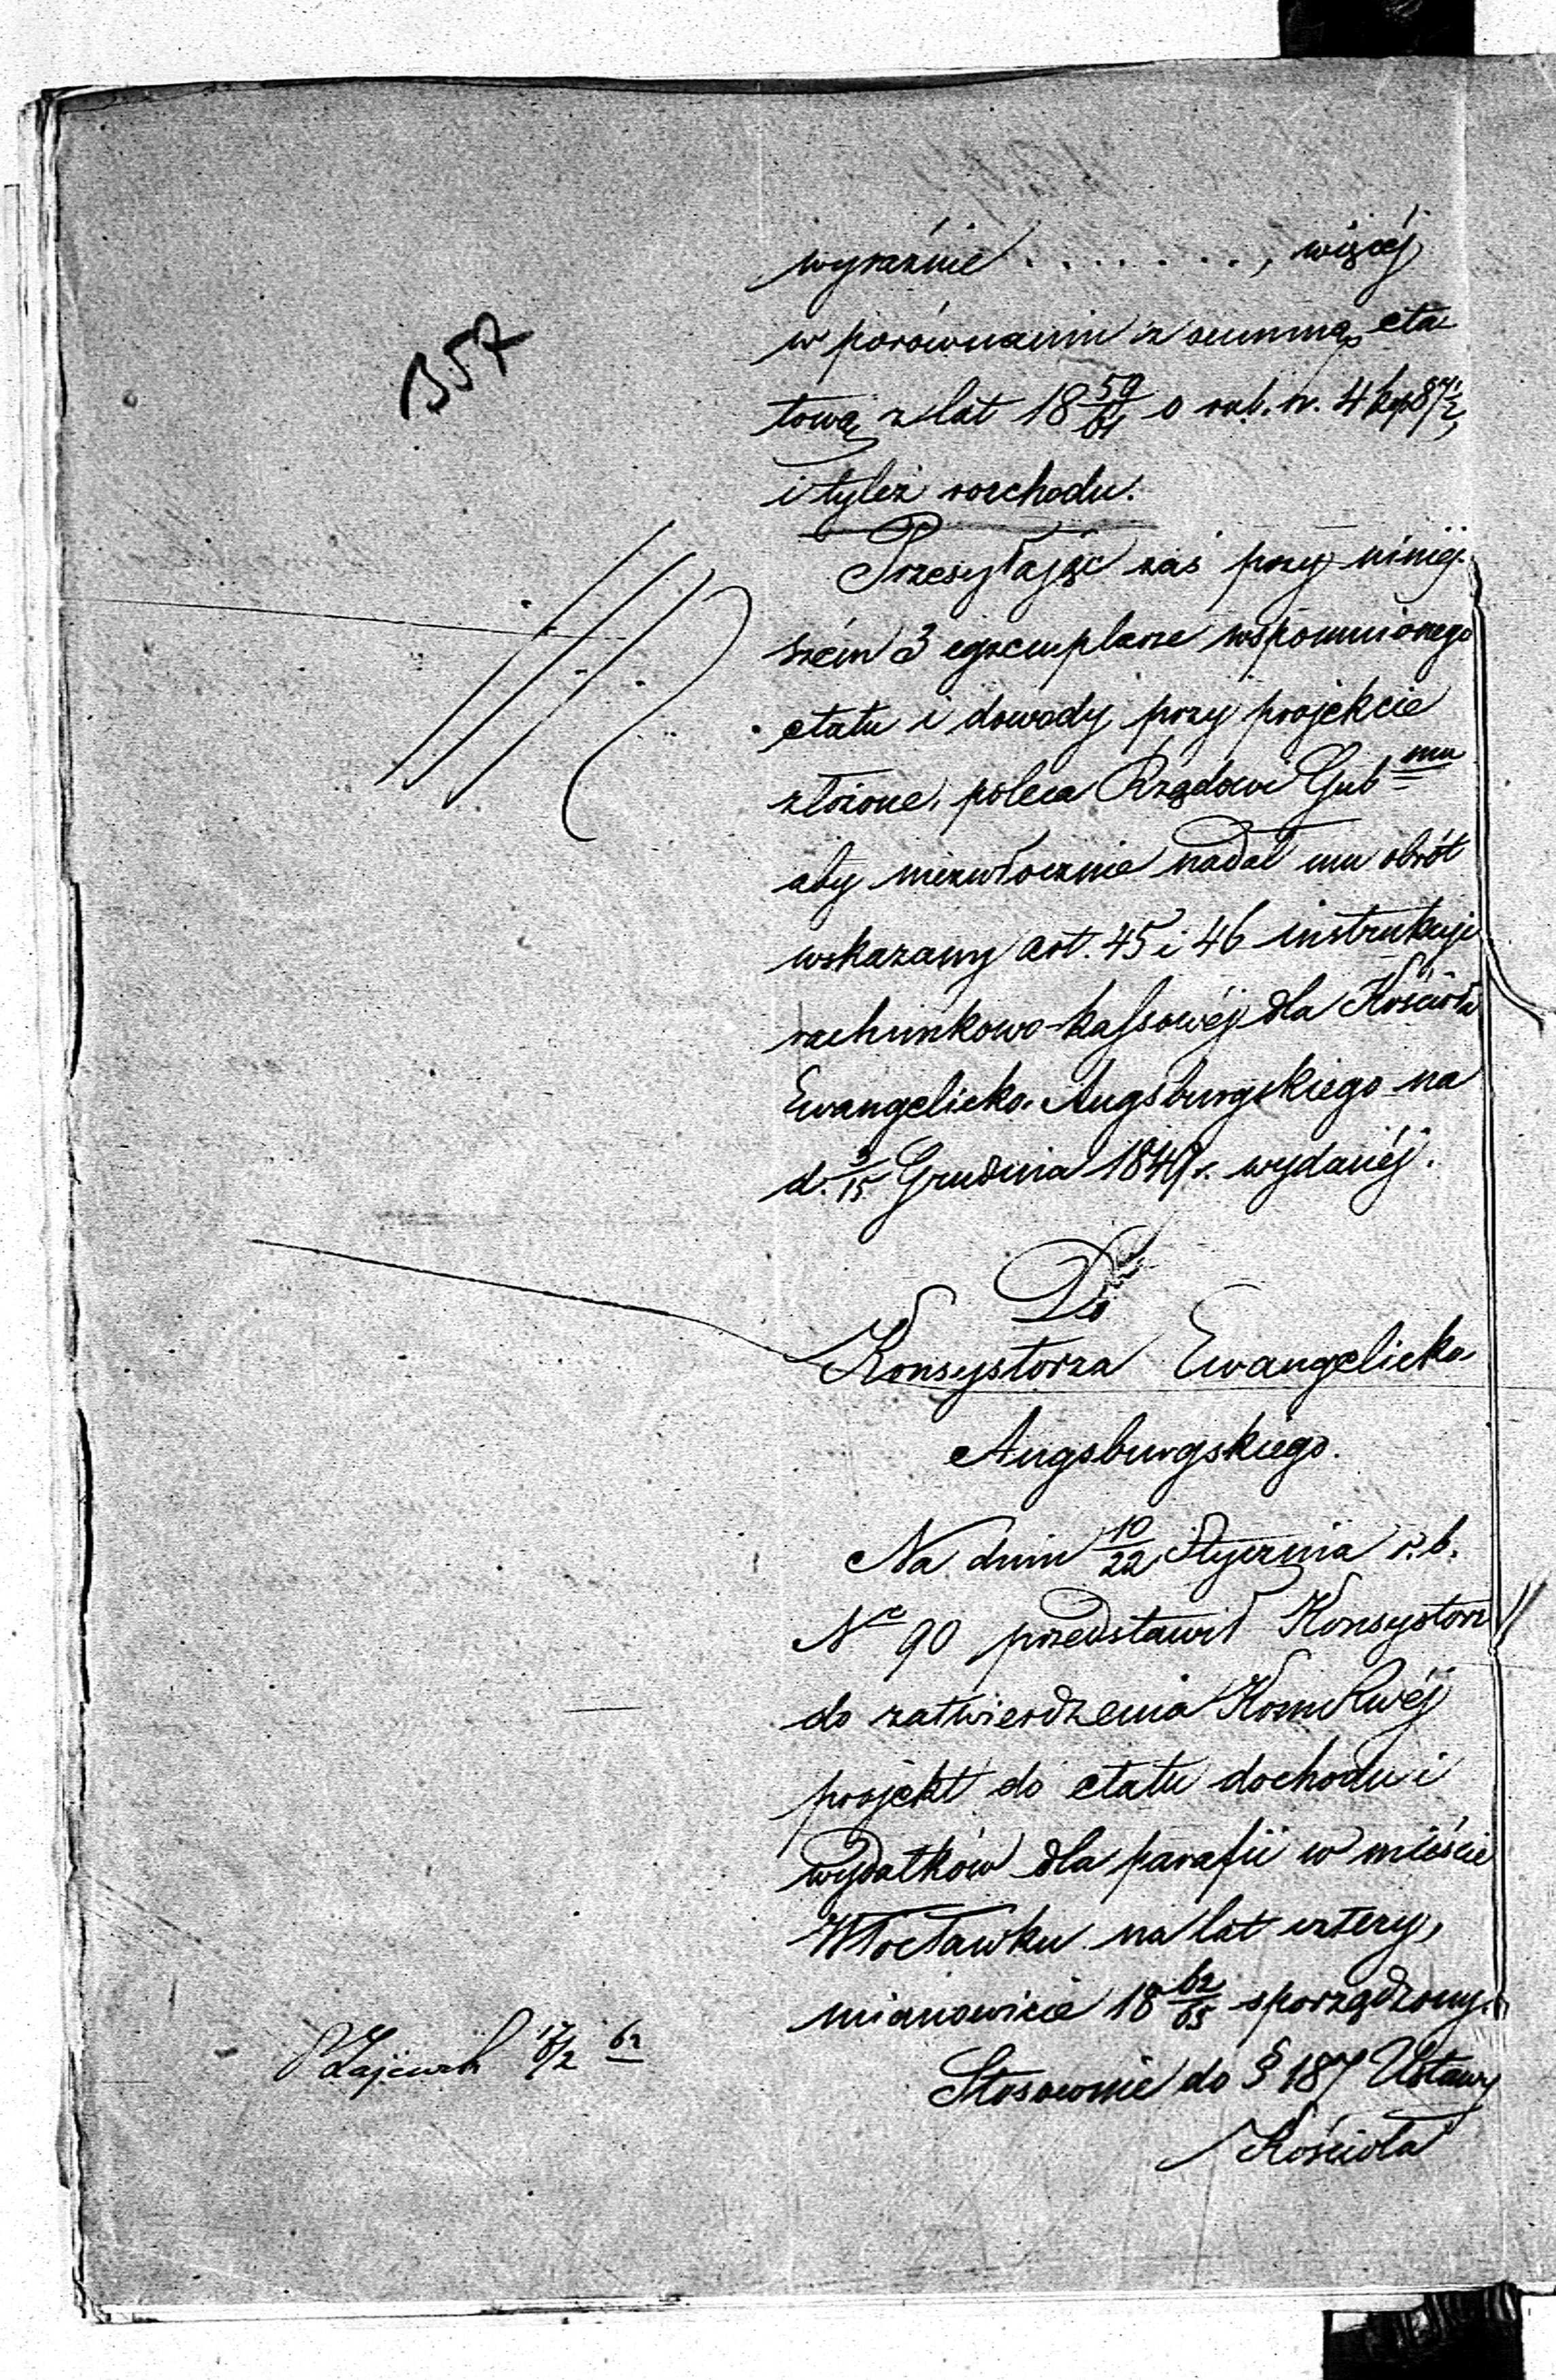 357
wyraźnie . . . . . . . , więcéj
w porównaniu z summą eta-
tową z lat 18 59/61 o rub. sr. 4 kop 87 1/2,
i tyleż rozchodu.
Przesyłając zaś przy niniéj-
szém 3 egzemplarze wspomnionego
etatu i dowody przy projekcie
złożone, poleca Rządowi Gub mu
aby niezwłocznie nadał mu obrót
wskazany art. 45 i 46 instrukcyi
rachunkowo-kassowéj dla Kościoła
Ewangelicko-Augsburgskiego na
d. 3/15 Grudnia 1849 r. wydanéj.
Do
Konsystorza Ewangelicko-
Augsburgskiego.
Na dniu 10/22 Stycznia r. b.
No 90 przedstawił Konsystorz
do zatwierdzenia Kom Rwéj
projekt do etatu dochodu i
wydatków dla parafii w mieście
Włocławku na lat cztery,
mianowicie 18 62/65 sporządzony.
Stosownie do § 187 Ustawy
Kościoła
62